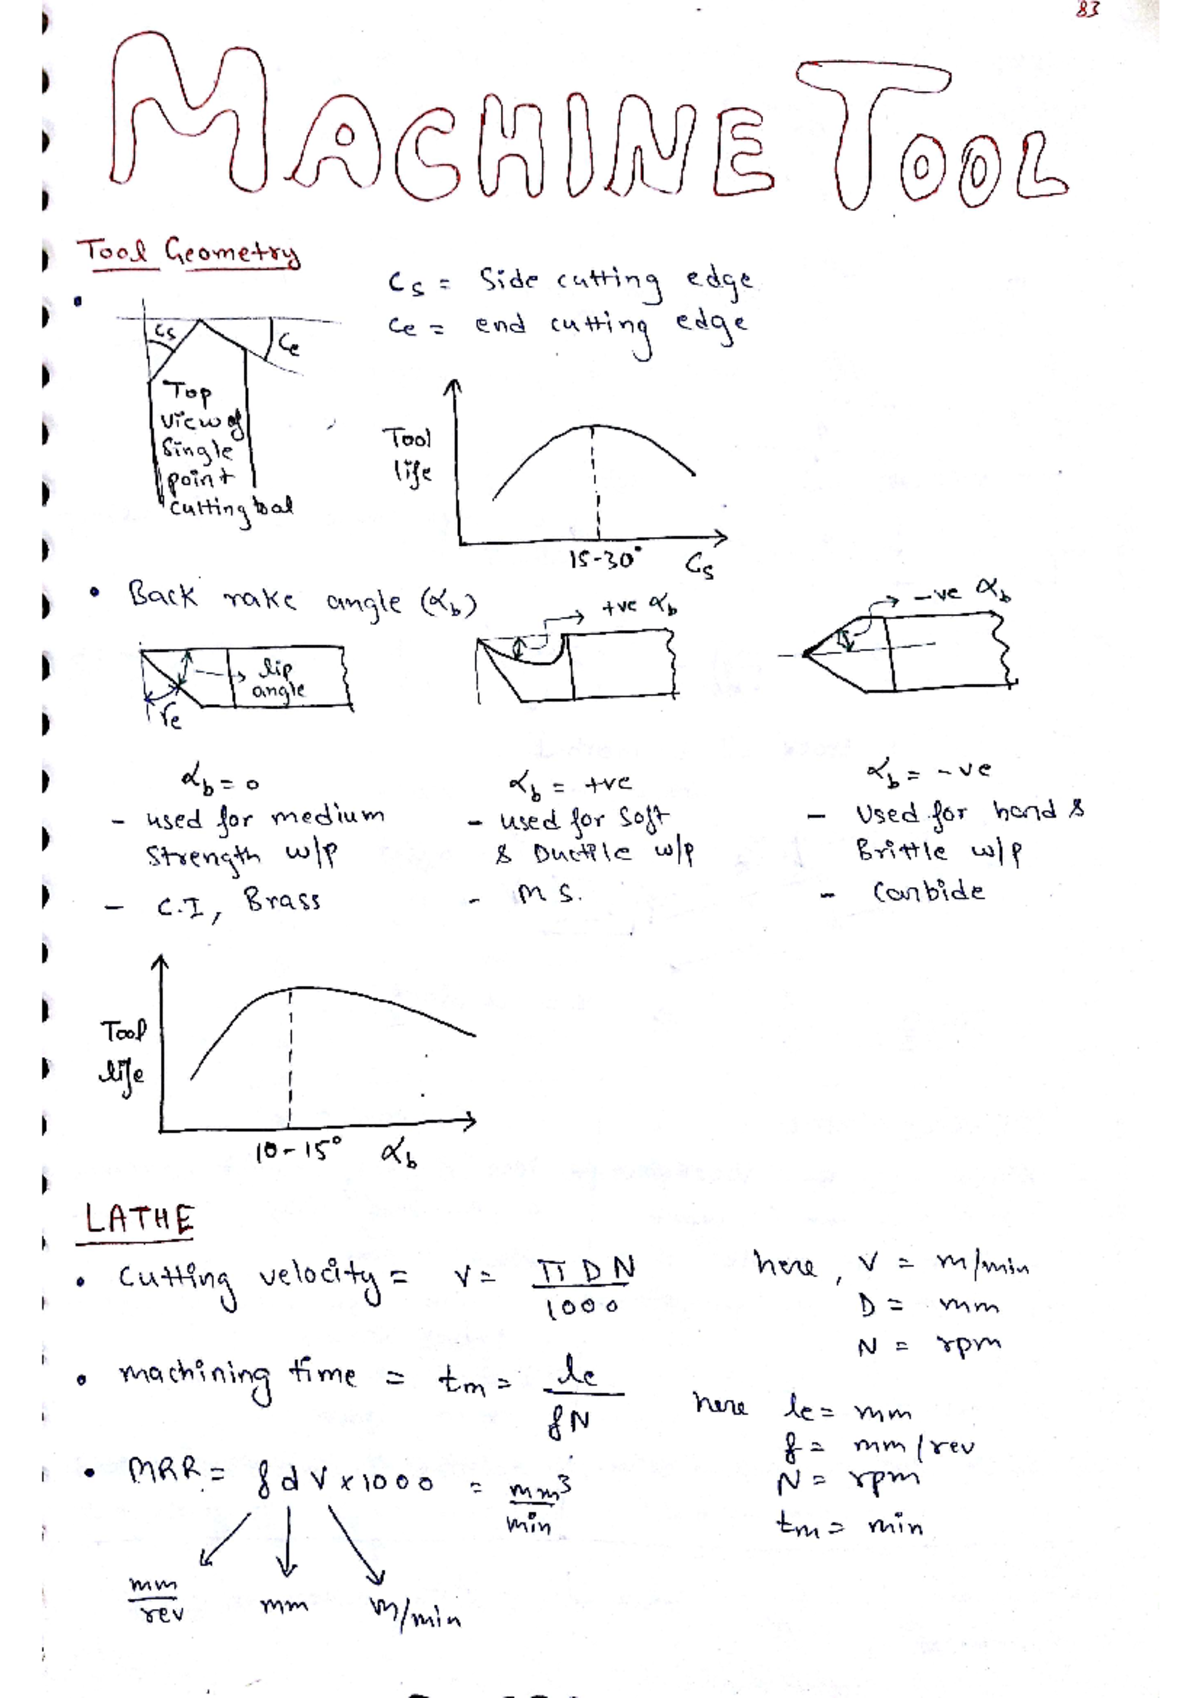 83
MACHINE TOOL
Tool Geometry
Cs = Side cutting edge
Ce = end cutting edge
Cs
Ce
Top
view of
Single
point
Cutting tool
Tool
life
15-30°
Cs
• Back rake angle (αb)
lip
angle
γe
+ve αb
-ve αb
αb = 0
- used for medium
Strength w/p
- C.I, Brass
αb = +ve
- used for Soft
& Ductile w/p
- M S.
αb = -ve
- Used for hard &
Brittle w/p
- Carbide
Tool
life
10-15°
αb
LATHE
• Cutting velocity = V = πDN
1000
here, V = m/min
D = mm
N = rpm
• machining time = tm = lc
fN
here lc = mm
f = mm/rev
N = rpm
tm = min
• MRR = f d V x 1000 = mm³
min
mm
rev
mm
m/min